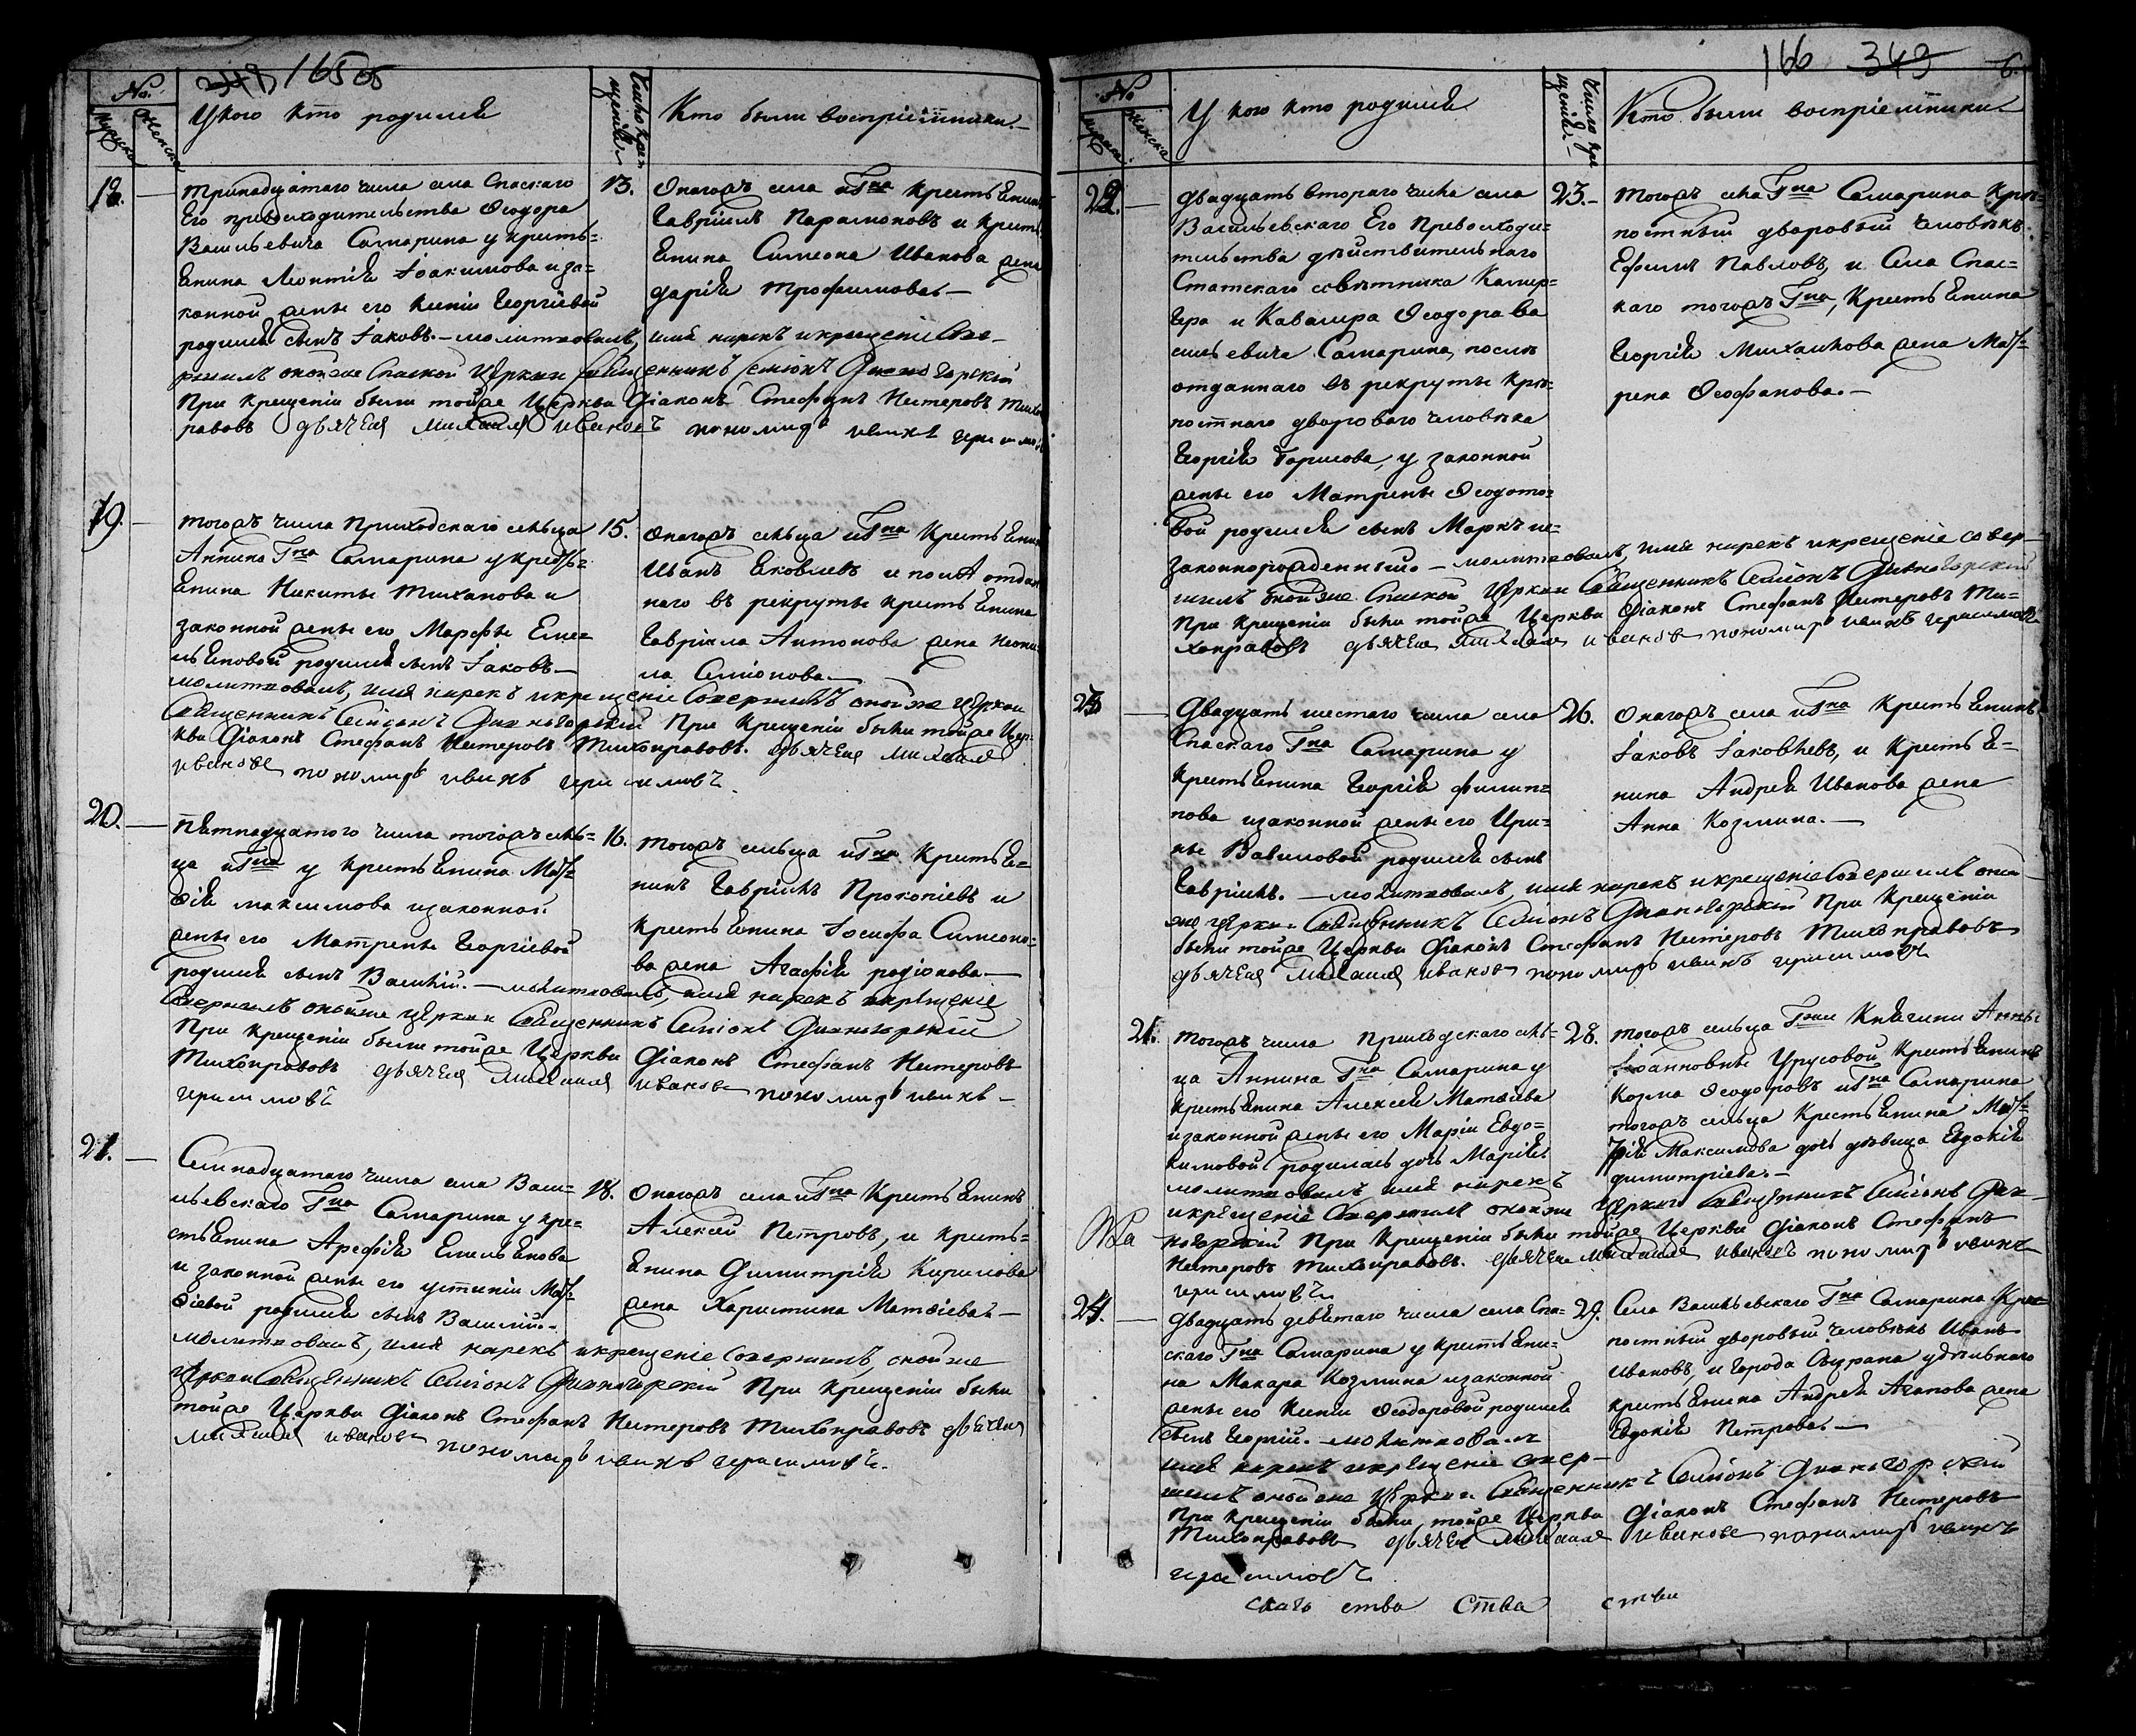 349 165
№.
мужска
женска
У кого кто родился
Число кре-
щенія.
Кто были воспріемники.
18.
Тринадцатаго числа села Спаскаго
Его превосходительства Ѳеодора
Васильевича Самарина у кресть=
янина Леонтія Іоакимова и за=
конной жены его Ксеніи Георгіевой
родился сынъ Іаковъ. — молитвовалъ, имя нарекъ и крещеніе Сове-
ршилъ оной же Спаской Церкви Священникъ Симіонъ Дивногорскій
При крещеніи были тойже Церкви Діаконъ Стефанъ Нестеровъ Тихо
нравовъ дьячекъ Михаилъ Ивановъ пономарь Иванъ Герасимовъ
13.
Онагожъ села и Гна крестьянинъ
Гавріилъ Парамоновъ и кресть
янина Симеона Иванова жена
Дарія Трофимова. —
19.
Тогожъ числа Приходскаго сельца
Аннина Гна Самарина у кресть=
янина Никиты Тиханова и
законной жены его Марфы Еме=
льяновой родился сынъ Іаковъ —
молитвовалъ, имя нарекъ и крещеніе Совершилъ оной же Церкви
Священникъ Симіонъ Дивногорскій При Крещеніи были тойже Цер=
кви Діаконъ Стефанъ Нестеровъ Тихонравовъ. дьячекъ Михаилъ
Ивановъ пономарь Иванъ Герасимовъ.
15.
Онагожъ сельца и Гна Крестьянинъ
Иванъ Яковлевъ и послѣ отдан
наго въ рекруты крестьянина
Гавріила Антонова жена Неони
ла Симіонова. —
20.
Пятнадцатого числа тогожъ сель=
ца и Гна у крестьянина Мат=
ѳія Максимова и законной
жены его Матрены Георгіевой
родился сынъ Василій. — молитвовалъ, имя нарекъ и крещеніе
Совершилъ оной же Церкви Священникъ Симіонъ Дивногорскій
При Крещеніи были тойже Церкви Діаконъ Стефанъ Нестеровъ
Тихонравовъ дьячекъ Михаилъ Ивановъ пономарь Иванъ
Герасимовъ
16.
Тогожъ сельца и Гна Крестья=
нинъ Гавріилъ Прокопіевъ и
крестьянина Іосифа Симеоно=
ва жена Агафія Родіонова. —
21.
Семнадцатаго числа села Васи=
льевскаго Гна Самарина у кре=
стьянина Арефія Емельянова
и законной жены его Устиніи Мат=
ѳіевой родился сынъ Василій. —
молитвовалъ, имя нарекъ и крещеніе Совершилъ, оной же
Церкви Священникъ Симіонъ Дивногорскій При Крещеніи были
тойже Церкви Діаконъ Стефанъ Нестеровъ Тихонравовъ дьячекъ
Михаилъ Ивановъ пономарь Иванъ Герасимовъ.
18.
Онагожъ села и Гна Крестьянинъ
Алексей Петровъ, и кресть=
янина Димитрія Кирилова
жена Харитина Матѳіева. —
166 349 6.
№
мужска
женска
У кого кто родился
Число кре
щеній.
Кто были воспріемники
22.
Двадцать втораго числа села
Васильевскаго Его Превосходи=
тельства дѣйствительнаго
Статскаго совѣтника Камер=
гера и Кавалера Ѳеодора Ва
сильевича Самарина, послѣ
отданнаго въ рекруты крѣ=
постнаго двороваго человѣка
Георгія Борисова, у законной
жены его Матрены Ѳеодото=
вой родился сынъ Маркъ не=
законнорожденный — молитвовалъ, имя нарекъ и крещеніе совер—
шилъ оной же Спаской Церкви Священникъ Симіонъ Дивногорскій
При Крещеніи были тойже Церкви Діаконъ Стефанъ Нестеровъ Ти=
хонравовъ дьячекъ Михаилъ Ивановъ пономарь Иванъ Герасимовъ
23. —
Тогожъ села Гна Самарина крѣ=
постный дворовый человѣкъ
Ефимъ Павловъ, и Села Спас=
каго тогожъ Гна, Крестьянина
Георгія Михайлова жена Мат=
рена Ѳеофанова. —
23
Двадцать шестаго числа села
Спаскаго Гна Самарина у
Крестьянина Георгія Филип=
пова и законной жены его Ири=
ны Вавиловой родился сынъ
Гавріилъ. — молитвовалъ, имя нарекъ и крещеніе Совершилъ оной
же Церкви Священникъ Симіонъ Дивногорскій При Крещеніи
были тойже Церкви Діаконъ Стефанъ Нестеровъ Тихонравовъ
дьячекъ Михаилъ Ивановъ пономарь Иванъ Герасимовъ
26.
Онагожъ села и Гна Крестьянинъ
Іаковъ Іаковлевъ, и Крестья=
нина Андрея Иванова жена
Анна Козмина. —
21.
Тогожъ числа Приходскаго сель=
ца Аннина Гна Самарина у
крестьянина Алексея Матѳіева
и законной жены его Маріи Евдо=
кимовой родилась дочь Марія.
молитвовалъ, имя нарекъ
и крещеніе Совершилъ оной же Церкви Священникъ Симіонъ Див—
ногорскій При Крещеніи были тойже Церкви Діаконъ Стефанъ
Нестеровъ Тихонравовъ. дьячекъ Михаилъ Ивановъ пономарь Иванъ
Герасимовъ
28.
Тогожъ сельца Гжи Княгини Анны
Іоанновны Урусовой Крестьянинъ
Козма Ѳеодоровъ и Гна Самарина
тогожъ сельца Крестьянина Мат=
ѳія Максимова дочь дѣвица Евдокія
Димитріева. —
24.
Двадцать девятаго числа села Спа=
скаго Гна Самарина у крестьяни=
на Макара Козмина и законной
жены его Ксеніи Ѳеодоровой родился
сынъ Георгій. — молитвовалъ
имя нарекъ и крещеніе совер—
шилъ оной же Церкви Священникъ Симіонъ Дивногорскій
При Крещеніи были тойже Церкви Діаконъ Стефанъ Нестеровъ
Тихонравовъ дьячекъ Михаилъ Ивановъ пономарь Иванъ
Герасимовъ
29.
Села Васильевскаго Гна Самарина Крѣ
постный дворовый человѣкъ Иванъ
Ивановъ, и Города Сызрана удѣльнаго
крестьянина Андрея Агапова жена
Евдокія Петрова. —
скаго ства Ства ства